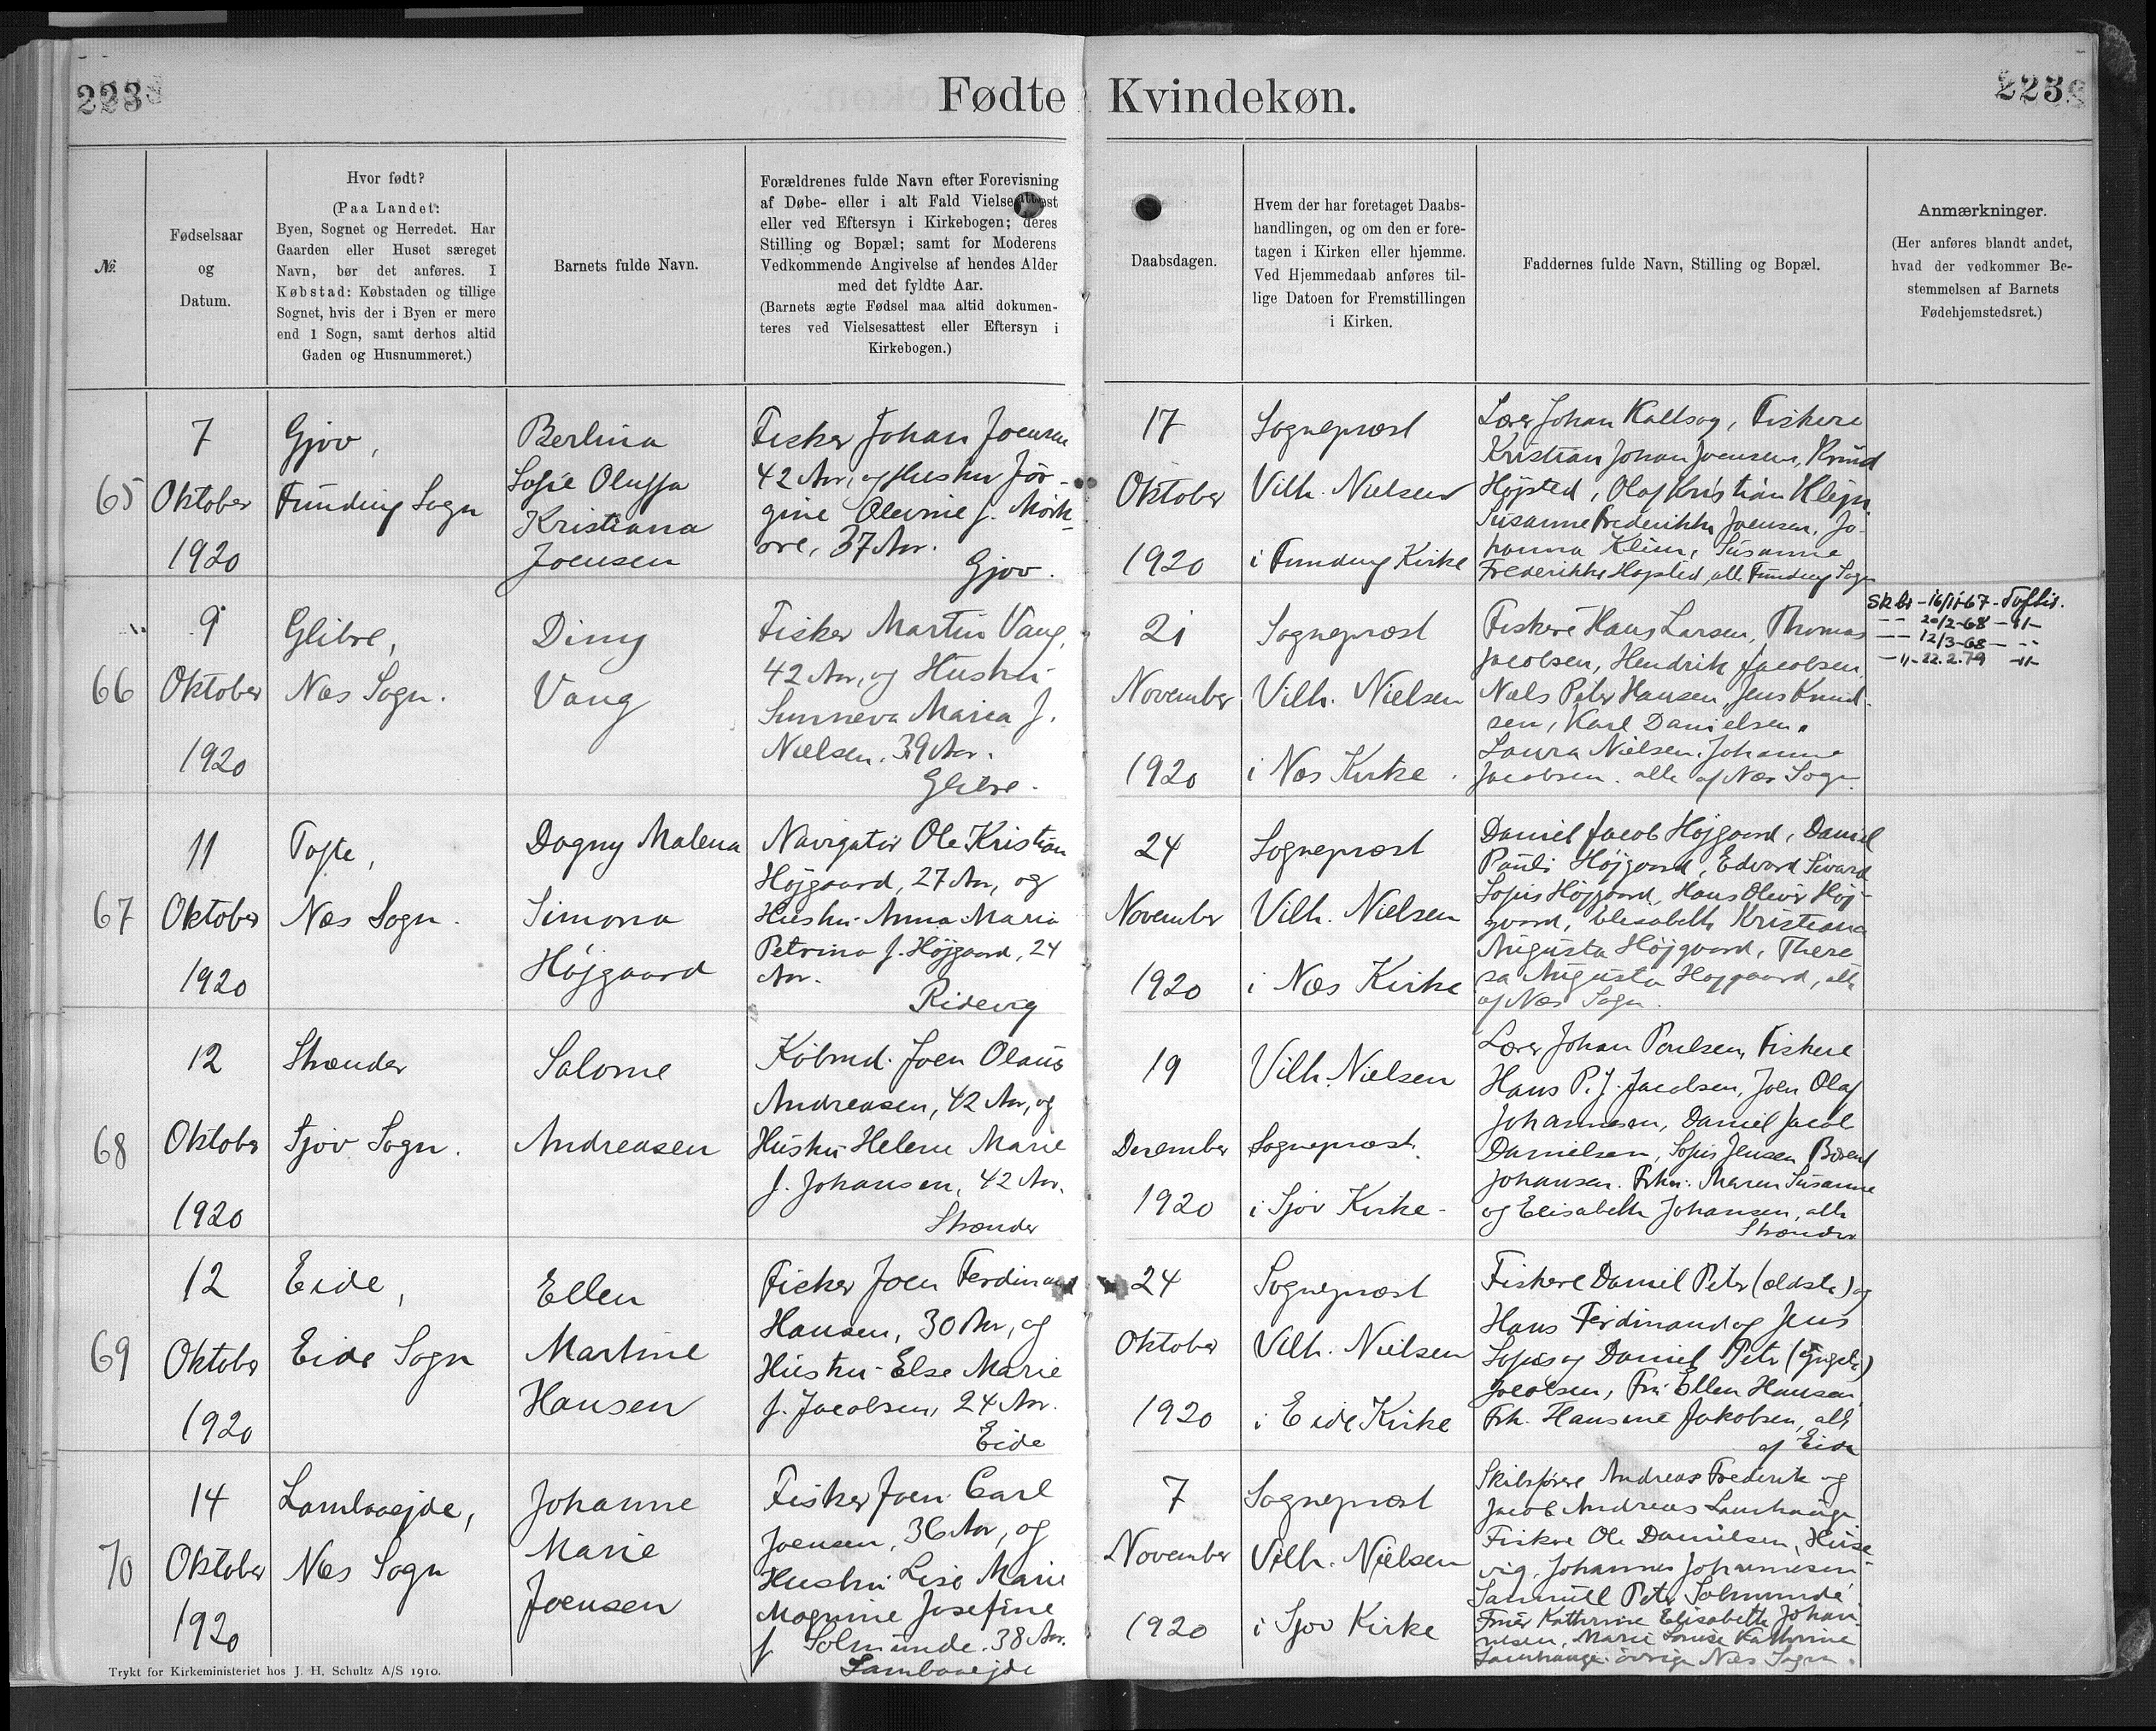 223
Fødte
Kvindekøn.
223
№
Fødselsaar
og
Datum.
Hvor født?
(Paa Landet:
Byen, Sognet og Herredet. Har
Gaarden eller Huset særeget
Navn, bør det anføres. I
Købstad: Købstaden og tillige
Sognet, hvis der i Byen er mere
end 1 Sogn, samt derhos altid
Gaden og Husnummeret.)
Barnets fulde Navn.
Forældrenes fulde Navn efter Forevisning
af Døbe- eller i alt Fald Vielsesattest
eller ved Eftersyn i Kirkebogen; deres
Stilling og Bopæl; samt for Moderens
Vedkommende Angivelse af hendes Alder
med det fyldte Aar.
(Barnets ægte Fødsel maa altid dokumen-
teres ved Vielsesattest eller Eftersyn i
Kirkebogen.)
Daabsdagen.
Hvem der har foretaget Daabs-
handlingen, og om den er fore-
tagen i Kirken eller hjemme.
Ved Hjemmedaab anføres til-
lige Datoen for Fremstillingen
i Kirken.
Faddernes fulde Navn, Stilling og Bopæl.
Anmærkninger.
(Her anføres blandt andet,
hvad der vedkommer Be-
stemmelsen af Barnets
Fødehjemstedsret.)
65
7
Oktober
1920
Gjov,
Funding Sogn
Berlina
Sofie Oluffa
Kristiana
Joensen
Fisker Johan Joensen
42 Aar, og Hustru Jör-
gine Olevine f. Mörk-
ore, 37 Aar.
Gjov.
17
Oktober
1920
Sognepræst
Vilh. Nielsen
i Funding Kirke
Lærer Johan Kallsoy, Fiskere
Kristian Johan Joensen, Knud
Højsted, Olaf Kristian Klein
Susanne Frederikke Joensen, Jo-
hanna Klein, Susanne
Frederikke Højsted, alle Funding Sogn
66
9
Oktober
1920
Glibre,
Nes Sogn.
Dimy
Vang
Fisker Martin Vang,
42 Aar, og Hustru
Sunneva Maria f.
Nielsen. 39 Aar.
Glibre.
21
November
1920
Sognepræst
Vilh. Nielsen
i Nes Kirke.
Fiskere Hans Larsen, Thomas
Jacobsen, Hendrik Jacobsen,
Niels Peter Hansen, Jens Knud-
sen, Karl Danielsen.
Laura Nielsen. Johanne
Jacobsen. alle af Nes Sogn.
Sk. br - 16/11-67 - Toftir.
- - 20/2-68 - 11 -
- - 12/3-68 - - -
- 11 - 22.2.79 - 11 -
67
11
Oktober
1920
Tofte,
Nes Sogn.
Dagny Malena
Simona
Højgaard
Navigatör Ole Kristian
Højgaard, 27 Aar, og
Hustru Anna Maria
Petrina f. Højgaard, 24
Aar.
Ridevig
24
November
1920
Sognepræst
Vilh. Nielsen
i Nes Kirke
Daniel Jacob Højgaard, Daniel
Pauli Højgaard, Edvard Sivard
Sofus Højgaard, Hans Oliver Høj-
gaard, Elisabeth Kristiana
Augusta Højgaard, There
sa Augusta Højgaard, alle
af Nes Sogn.
68
12
Oktober
1920
Strænder
Sjov Sogn.
Salome
Andreasen
Købmd. Joen Olaus
Andreasen, 42 Aar, og
Hustru Helene Marie
f. Johansen, 42 Aar.
Strænder
19
December
1920
Vilh. Nielsen
Sognepræst.
i Sjov Kirke-
Lærer Johan Poulsen, Fiskere
Hans P. J. Jacobsen, Joen Olaf
Johannesen, Daniel Jacob
Danielsen, Sofus Jensen,
Johansen. Frkn: Maren Susanne
og Elisabeth Johansen, alle
Strænder
69
12
Oktober
1920
Eide,
Eide Sogn
Ellen
Martine
Hansen
Fisker Joen Ferdinand
Hansen, 30 Aar, og
Hustru Else Marie
f. Jacobsen, 24 Aar.
Eide
24
Oktober
1920
Sognepræst
Vilh. Nielsen
i Eide Kirke
Fiskere Daniel Peter (ældste) og
Hans Ferdinand og Jens
Sofus og Daniel Petr (yngste)
Jacobsen, Fru Ellen Hansen
Frk. Hansine Jakobsen, alle
af Eide
70
14
Oktober
1920
Lambaaejde,
Nes Sogn
Johanne
Marie
Joensen
Fisker Joen Carl
Joensen, 36 Aar, og
Hustru Lise Marie
Magnine Josefine
f. Solmunde. 38 Aar.
Lambaaejde
7
November
1920
Sognepræst
Vilh. Nielsen
i Sjov Kirke
Skibsförere Andreas Frederik og
Jacob Andreas Lamhauge
Fiskere Ole Danielsen, Huse-
vig, Johannes Johannesen
Samuell Peter Solmunde,
Fruer Kathrine Elisabeth Johan-
nesen, Marie Louise Kathrine
Lamhauge. övrige Nes Sogn.
Trykt for Kirkeministeriet hos J. H. Schultz A/S 1910.